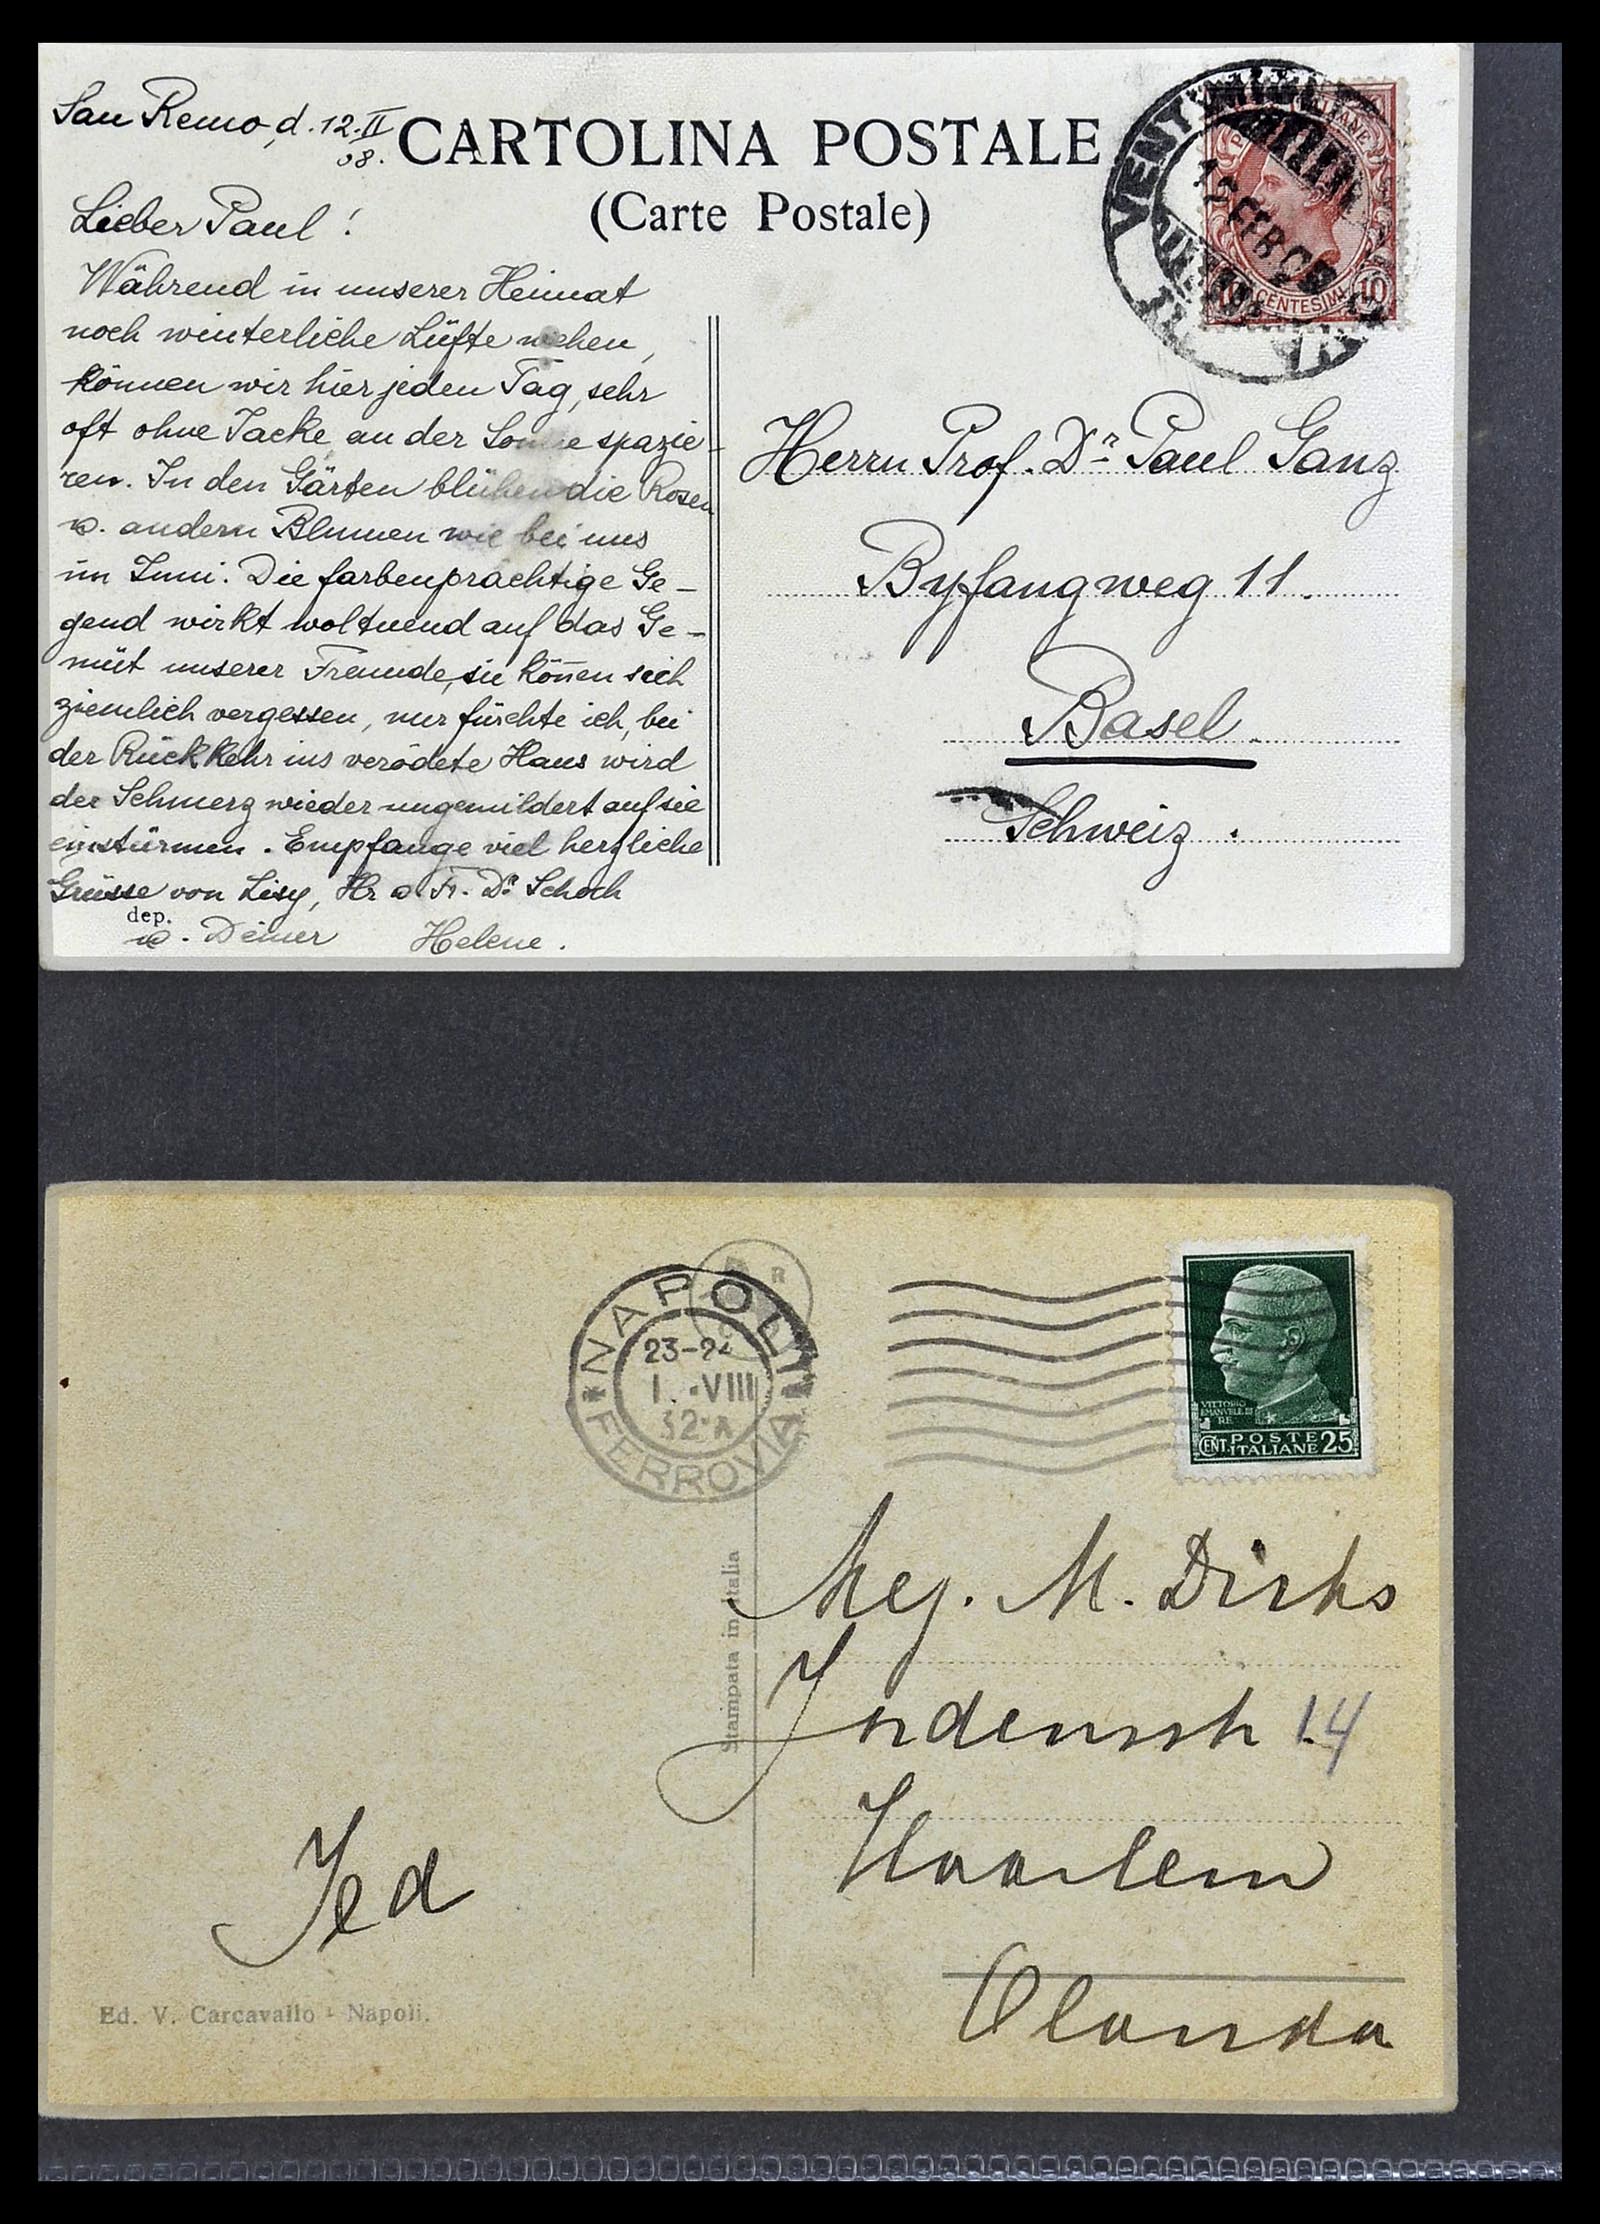 San Remo, d. 12. II
08.
CARTOLINA POSTALE
(Carte Postale)
Lieber Paul!
Während in unserer Heimat
noch winterliche Lüfte wehen,
können wir hier jeden Tag, sehr
oft ohne Jacke, an der Sonne spazie-
ren. In den Gärten blühen die Rosen
u. andern Blumen wie bei uns
im Juni. Die farbenprächtige Ge-
gend wirkt woltuend auf das Ge-
müt unserer Freunde, sie kön̄en sich
ziemlich vergessen, nur fürchte ich, bei
der Rückkehr ins verödete Haus wird
der Schmerz wieder ungemildert auf sie
einstürmen. Empfange viel herzliche
Grüsse von Lisy, Hr. u. Fr. Dr. Schoch
dep.
u. Deiner Helene.
12 FEB 08
POSTE ITALIANE
10 CENTESIMI 10
Herrn Prof. Dr. Paul Ganz
Byfangweg 11.
Basel.
Schweiz.
NAPOLI
23-24
1.-VIII
32-X
FERROVIA
VITTORIO
EMANVELE III
RE
CENT. POSTE ITALIANE 25
Stampata in Italia
Mej. M. Dirks
Jordenstr 14
Haarlem
Olanda
Jed
Ed. V. Carcavallo - Napoli.